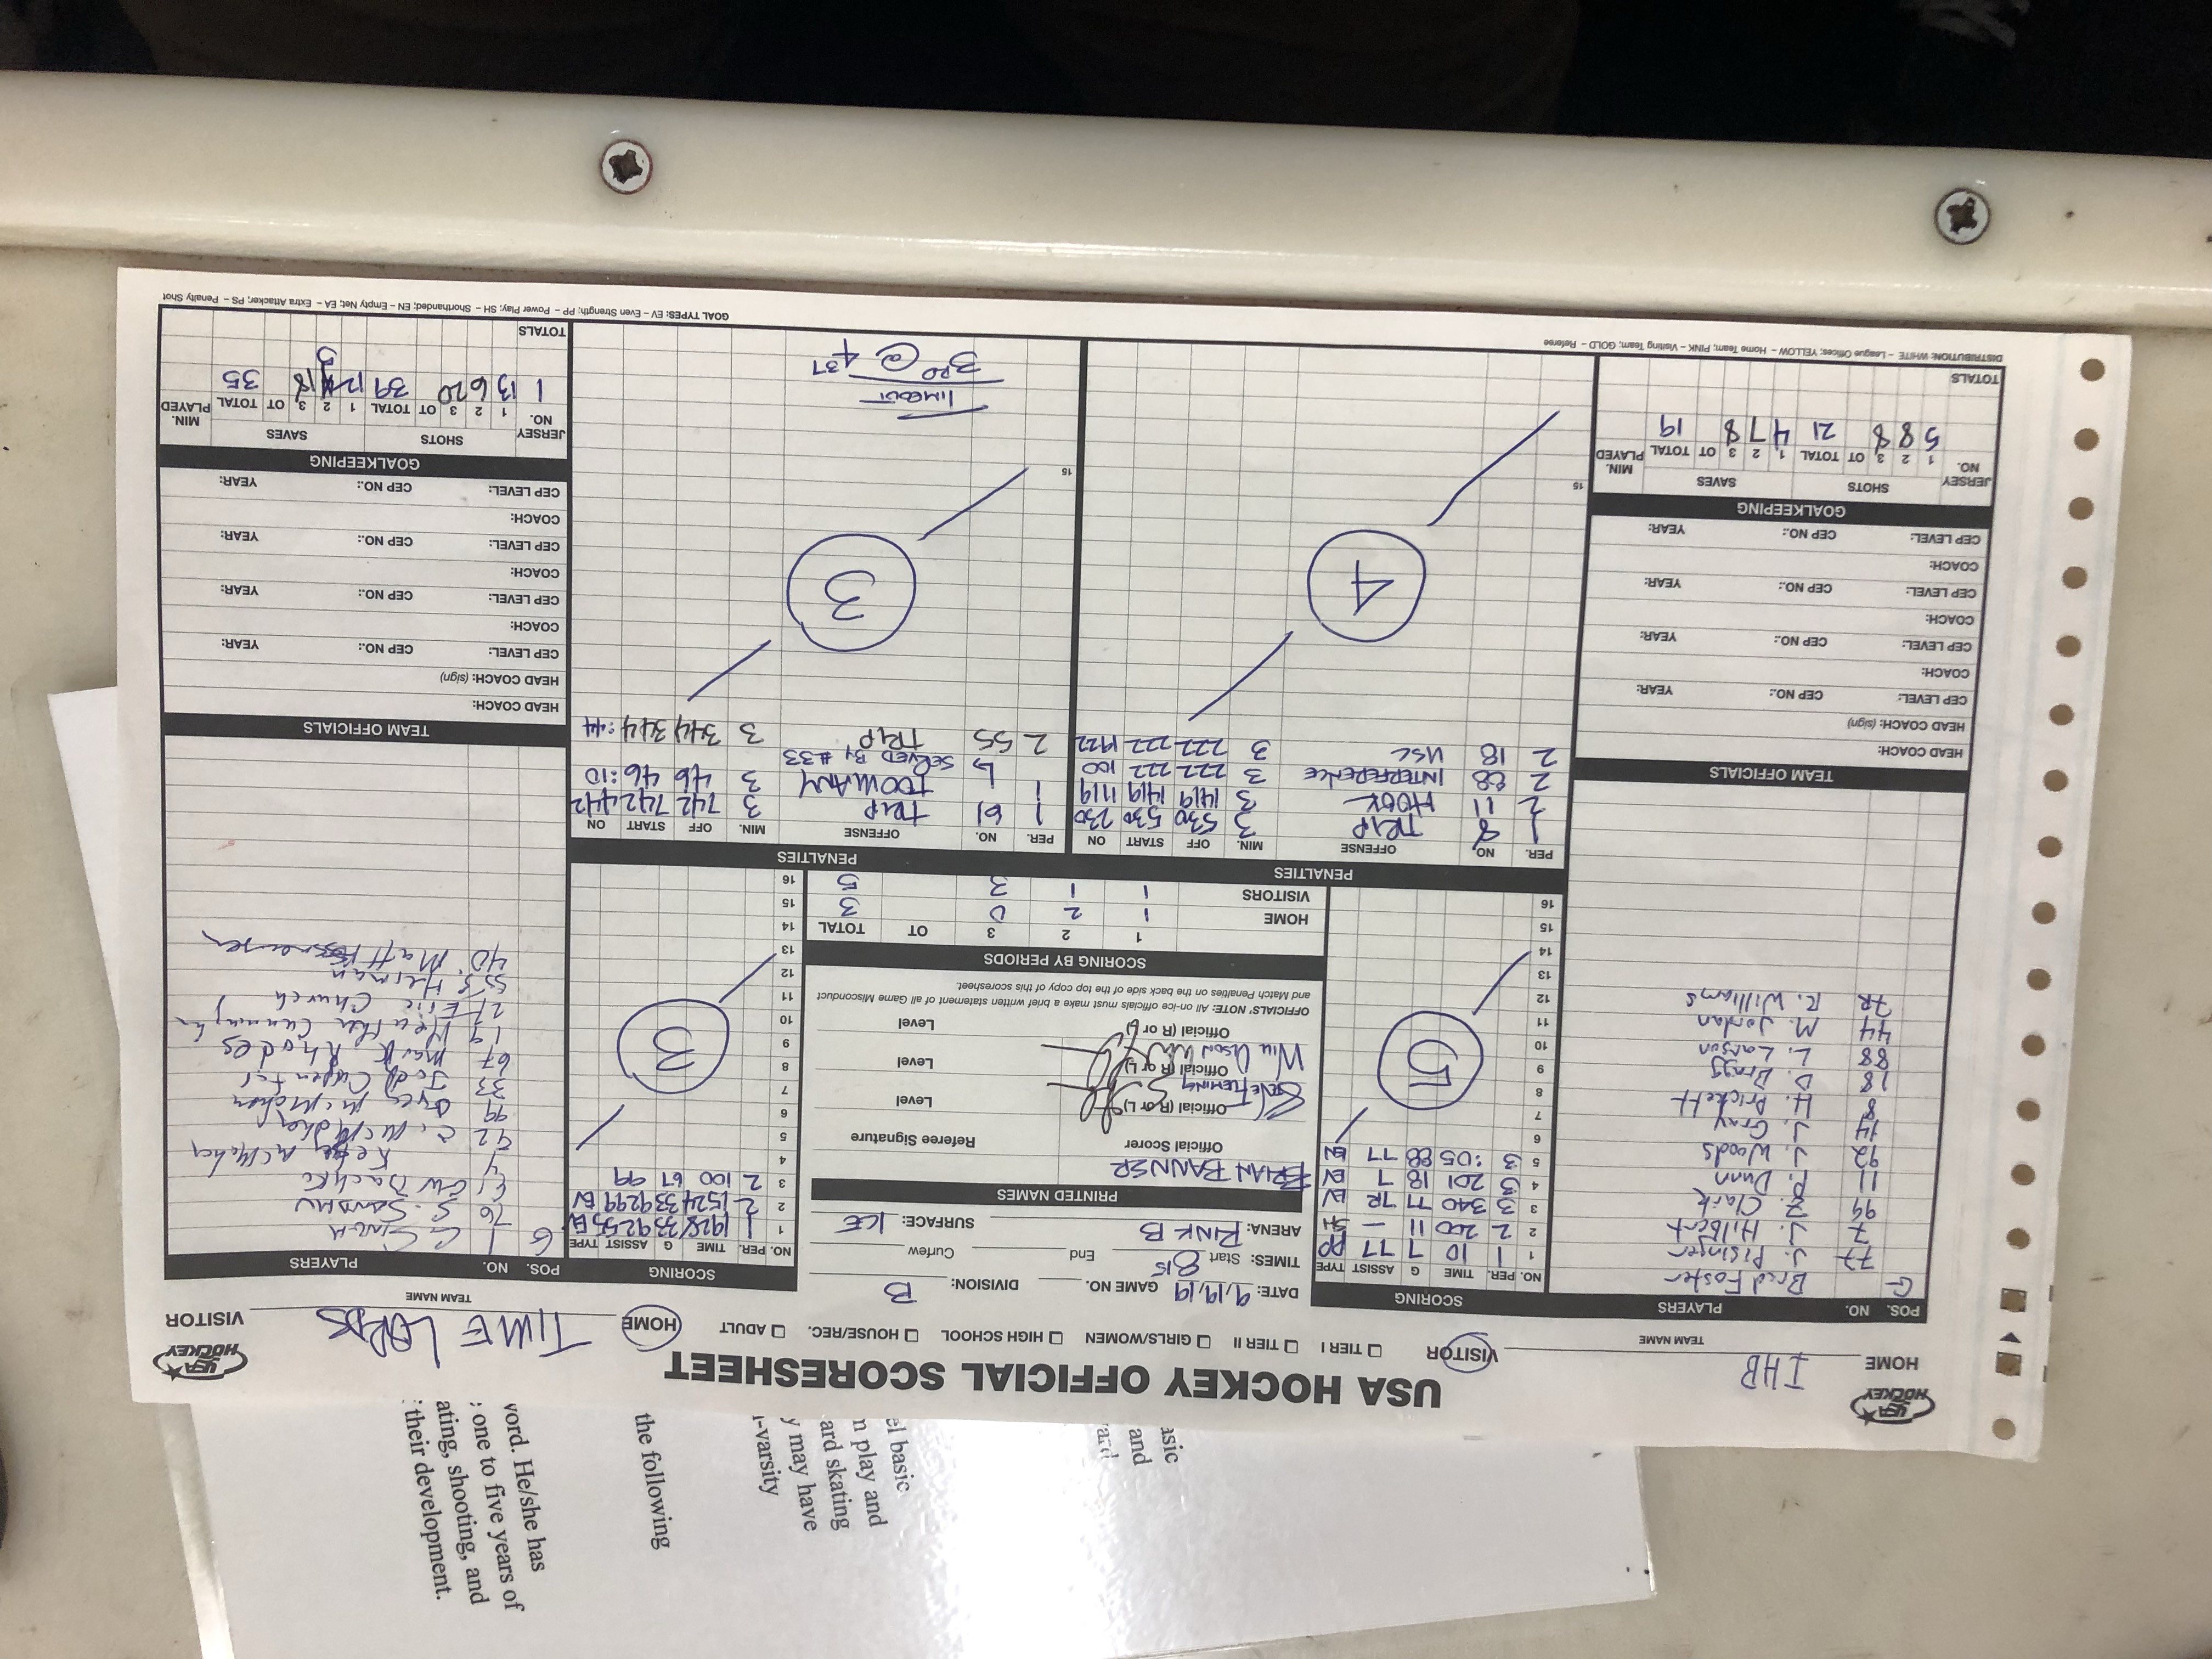 USA HOCKEY OFFICIAL SCORESHEET
USA HOCKEY
HOME IHB VISITOR
TEAM NAME
TIER I TIER II GIRLS/WOMEN HIGH SCHOOL HOUSE/REC. ADULT
HOME TIME LORDS VISITOR
TEAM NAME
USA HOCKEY
POS. NO. PLAYERS
G Brad Foster
77 J. Pisinger
7 J. Hilbert
99 Z. Clark
11 P. Dunn
92 J. Woods
14 J. Gray
8 H. Prickett
18 D. Braggs
88 L. Larson
44 M. Jordan
72 R. Williams
TEAM OFFICIALS
HEAD COACH:
HEAD COACH: (sign)
CEP LEVEL: CEP NO.: YEAR:
COACH:
CEP LEVEL: CEP NO.: YEAR:
COACH:
CEP LEVEL: CEP NO.: YEAR:
COACH:
CEP LEVEL: CEP NO.: YEAR:
GOALKEEPING
JERSEY NO. SHOTS SAVES MIN. PLAYED
1 2 3 OT TOTAL 1 2 3 OT TOTAL
5 8 8 21 4 7 8 19
TOTALS
SCORING
NO. PER. TIME G ASSIST TYPE
1 1 10 7 77 PP
2 2 200 11 — SH
3 3 340 77 72 EV
4 3 201 18 7 EV
5 3 :05 88 77 EN
6
7
8
9
10
11
12
13
14
15
16
5
DATE: 9/19/19 GAME NO. DIVISION: B
TIMES: Start 815 End Curfew
ARENA: RINK B SURFACE: ICE
PRINTED NAMES
BRIAN BANNER
Official Scorer Referee Signature
Official (R or L) Level
GENE FLEMING
Official (R or L) Level
Will Olson
Official (R or L) Level
OFFICIALS' NOTE: All on-ice officials must make a brief written statement of all Game Misconduct
and Match Penalties on the back side of the top copy of this scoresheet.
SCORING BY PERIODS
1 2 3 OT TOTAL
HOME 1 2 0 3
VISITORS 1 1 3 5
SCORING
NO. PER. TIME G ASSIST TYPE
1 1 1928 33 92 55 EV
2 2 1524 33 92 99 EV
3 2 100 67 99
4
5
6
7
8
9
10
11
12
13
14
15
16
3
POS. NO. PLAYERS
G 1 G. SINGH
76 S. SANDHU
61
4
92 C. McMaher
99 McMaher
33 Todd Carpenter
67 Mark Rhodes
19 Heather Cunningham
21 Eric Church
55 S. Heiman
40 Matt
TEAM OFFICIALS
HEAD COACH:
HEAD COACH: (sign)
CEP LEVEL: CEP NO.: YEAR:
COACH:
CEP LEVEL: CEP NO.: YEAR:
COACH:
CEP LEVEL: CEP NO.: YEAR:
COACH:
CEP LEVEL: CEP NO.: YEAR:
GOALKEEPING
JERSEY NO. SHOTS SAVES MIN. PLAYED
1 2 3 OT TOTAL 1 2 3 OT TOTAL
1 13 6 20 39 12 5 18 35
TOTALS
PENALTIES
PER. NO. OFFENSE MIN. OFF START ON
1 8 TRIP 3 530 530 230
2 11 HOOK 3 1419 1419 1119
2 88 INTERFERENCE 3 222 222 100
2 18 USC 3 222 222 1922
4
15
PENALTIES
PER. NO. OFFENSE MIN. OFF START ON
1 61 TRIP 3 742 742 442
1 4 TOO MANY 3 46 46 :10
SERVED BY #33
2 55 TRIP 3 344 344 :44
3
15
TIMEOUT
3RD @ 4 37
DISTRIBUTION: WHITE – League Offices; YELLOW – Home Team; PINK – Visiting Team; GOLD – Referee
GOAL TYPES: EV – Even Strength; PP – Power Play; SH – Shorthanded; EN – Empty Net; EA – Extra Attacker; PS – Penalty Shot
word. He/she has
one to five years of
ating, shooting, and
their development.
the following
el basic
n play and
ard skating
y may have
-varsity
asic
and